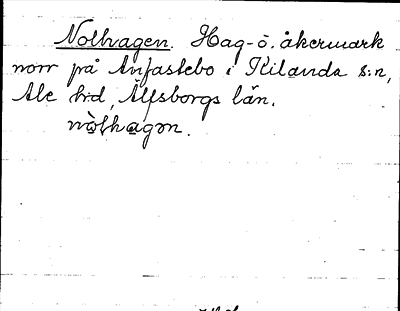 Nolhagen. Hag- o. åkermark
norr på Anfastebo i Kilanda s:n,
Ale hd, Älfsborgs län.
nòlhagən.